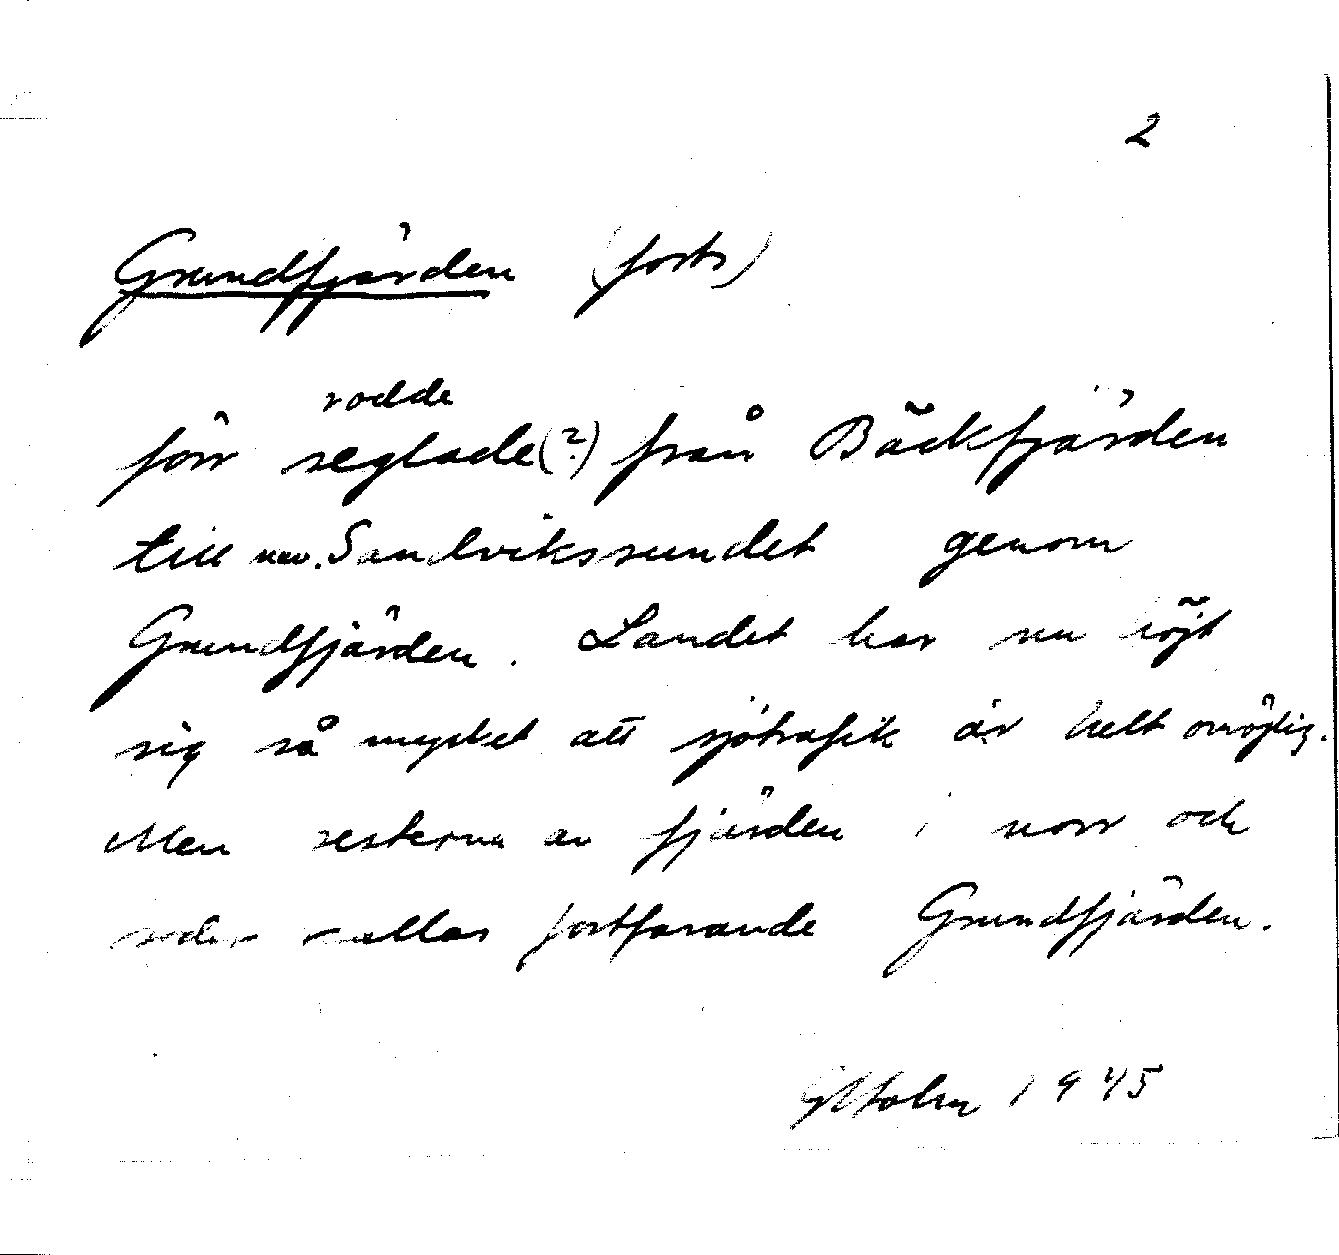 2
Grundfjärden (forts)
rodde
förr seglade(?) från Bäckfjärden
till nuv. Sandvikssundet genom
Grundfjärden. Landet har nu höjt
sig så mycket att sjötrafik är helt omöjlig.
Men resterna av fjärden i norr och
söder kallas fortfarande Grundfjärden.
GHolm 1945